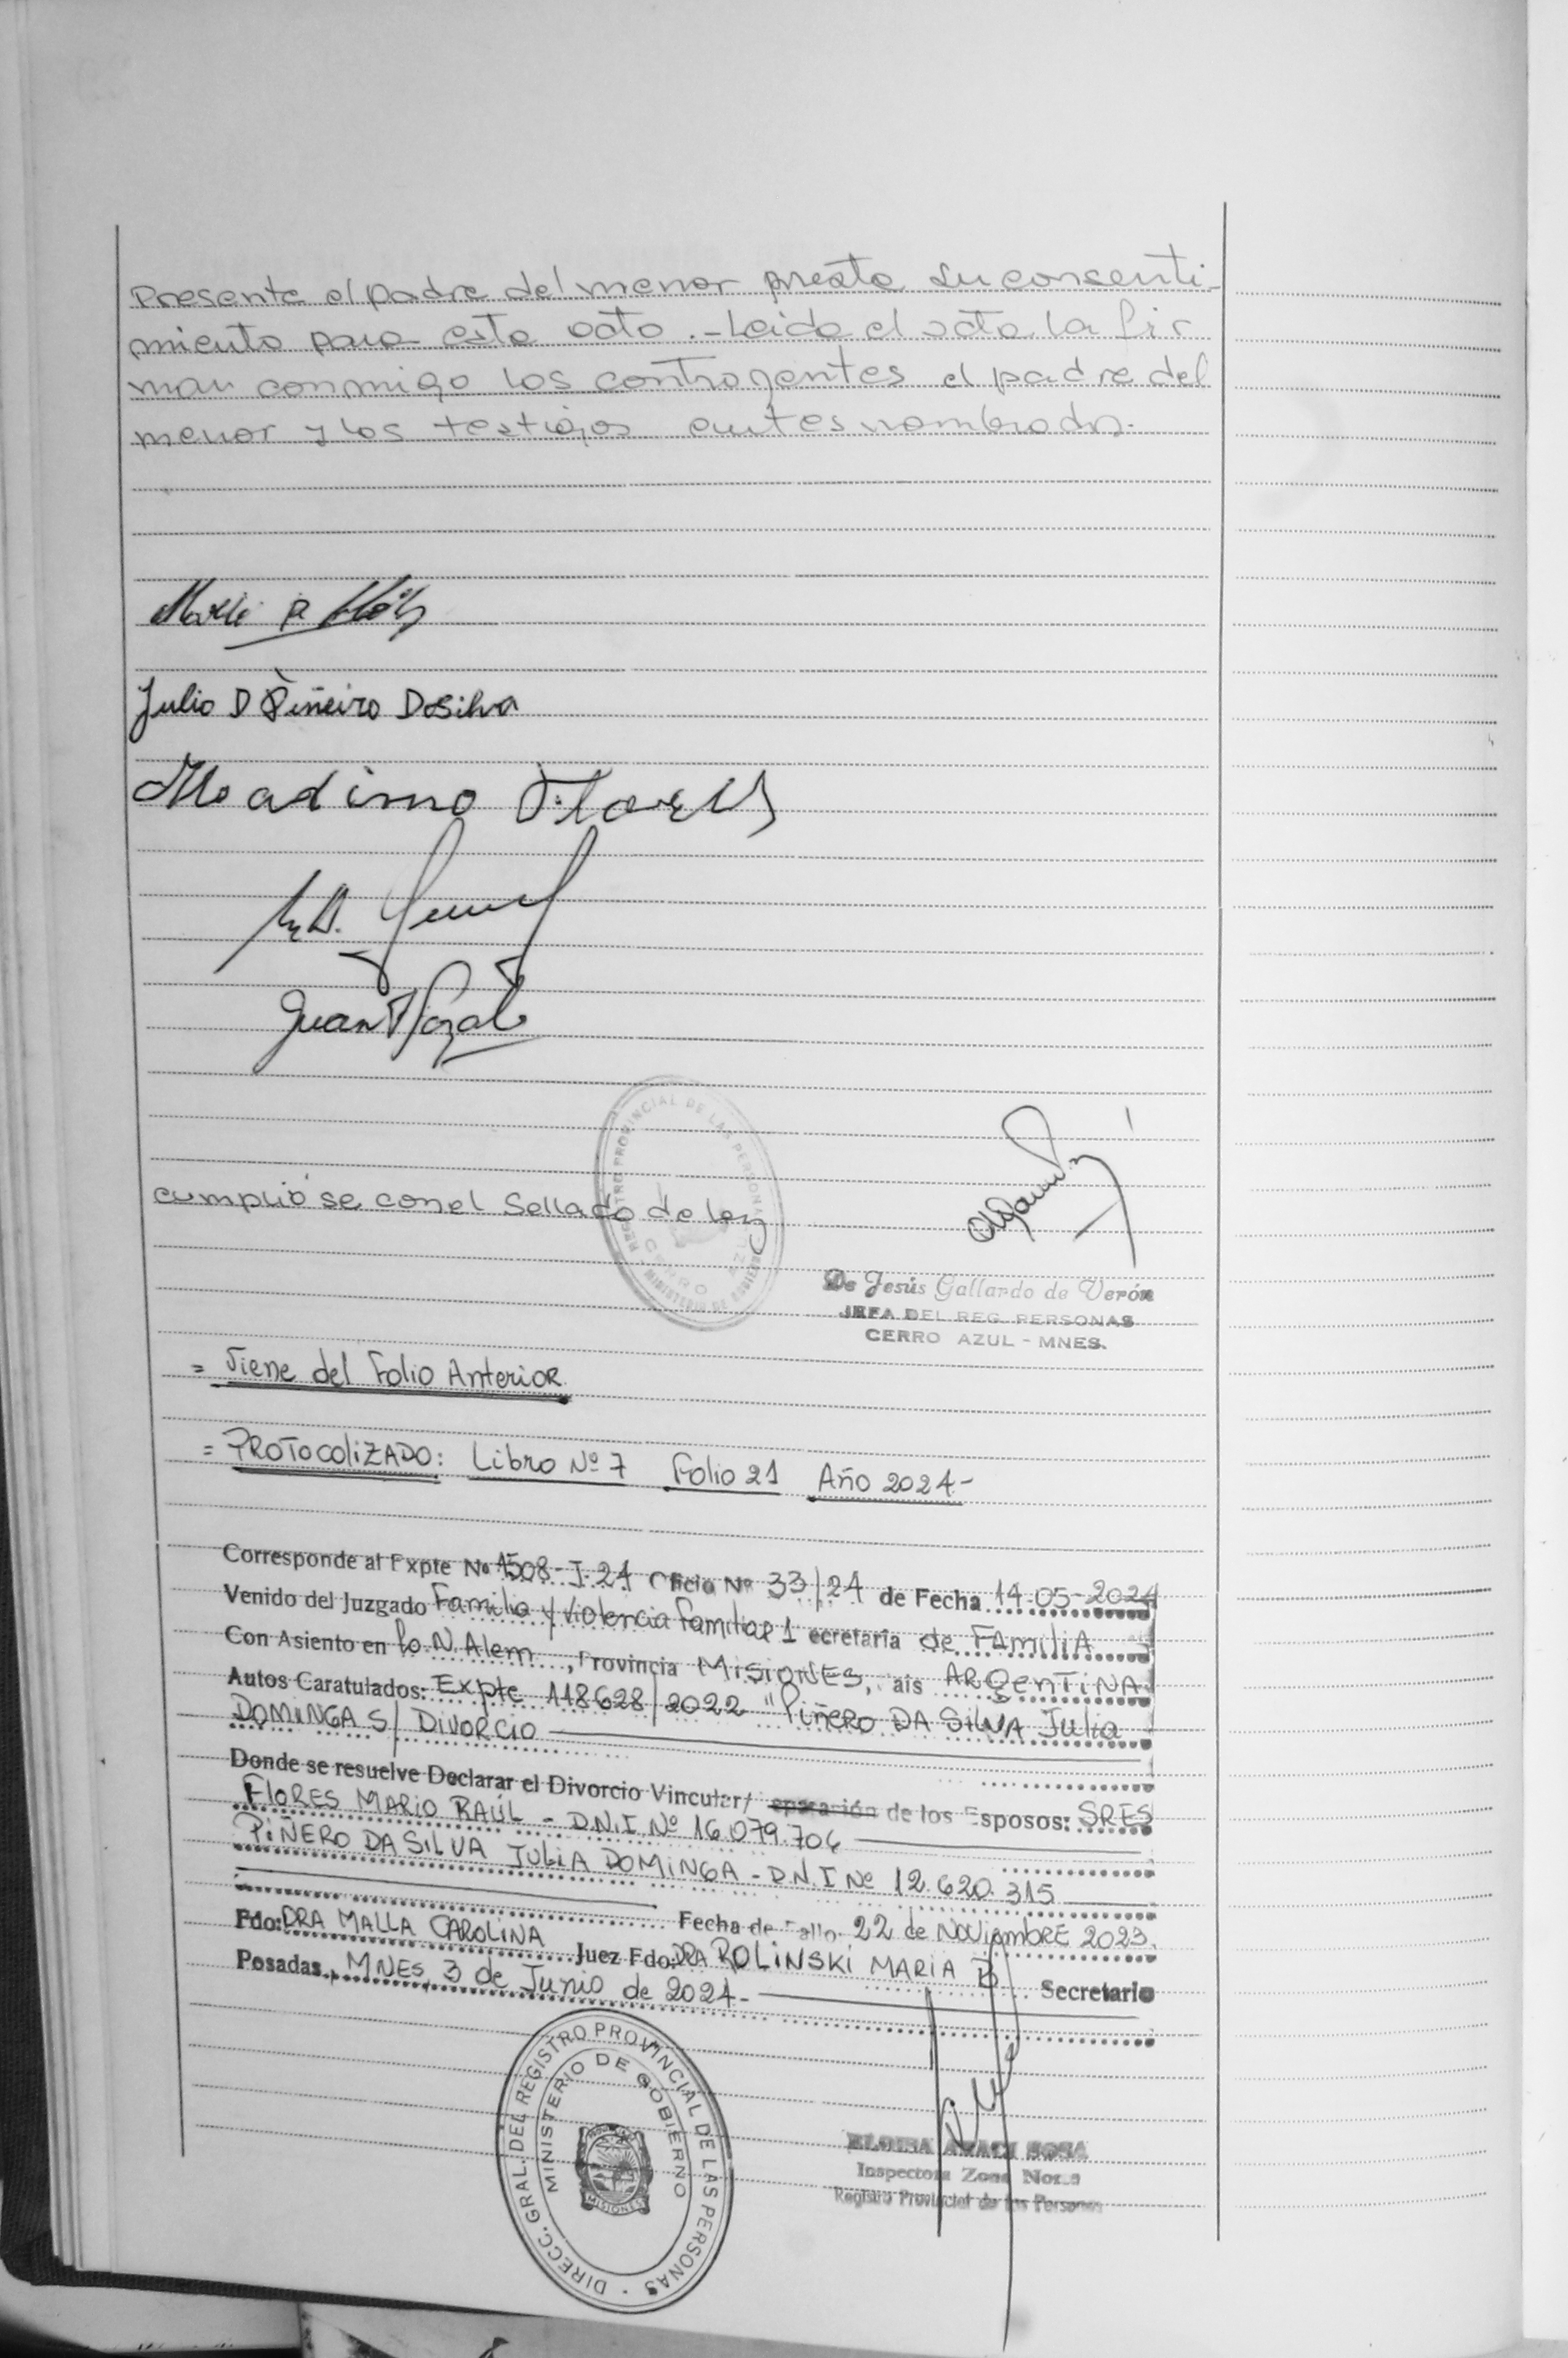 Presente el padre del menor presta su consenti-
miento para este acto.- Leida el acta la fir
man conmigo los contrayentes el padre del
menor y los testigos antes nombrados.-
Julio D Piñeiro Dasilva
Flores
Juan
REGISTRO PROVINCIAL DE LAS PERSONAS
MINISTERIO DE GOBIERNO
CERRO AZUL
cumplió se con el Sellado de ley
De Jesús Gallardo de Verón
JEFA DEL REG. PERSONAS
CERRO AZUL - MNES.
= Viene del Folio Anterior
= PROTOCOLIZADO: Libro Nº 7 Folio 21 Año 2024-
Corresponde al Expte Nº 1508-I-24 Oficio Nº 33/24 de Fecha 14-05-2024
Venido del Juzgado Familia y Violencia familiar 1 ecretaría de FAMILIA
Con Asiento en L.N. Alem, Provincia MISIONES, aís ARGENTINA
Autos Caratulados: Expte 118628/2022 "Piñero DA SILVA JULIA
DOMINGA S/ DIVORCIO
Donde se resuelve Declarar el Divorcio Vincular/ eparación de los Esposos: SRES
FLORES MARIO RAÚL - D.N.I. Nº 16.079.704
PIÑERO DA SILVA JULIA DOMINGA - D.N.I Nº 12.620.315
Fecha de Fallo: 22 de NOViembRE 2023.
Fdo: DRA MALLA CAROLINA Juez Fdo: DRA ROLINSKI MARIA B Secretario
Posadas, MNES, 3 de Junio de 2024-
DIRECC. GRAL. DEL REGISTRO PROVINCIAL DE LAS PERSONAS
MINISTERIO DE GOBIERNO
MISIONES
ELOISA ARACI SOSA
Inspectora Zona
Registro Provincial de las Personas